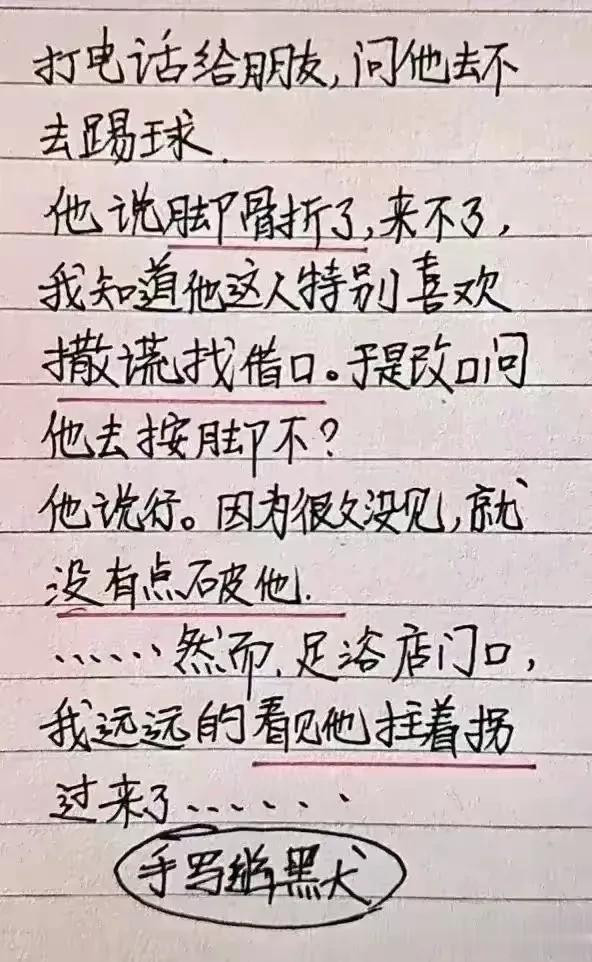 打电话给朋友,问他去不
去踢球.
他说脚骨折了,来不了,
我知道他这人特别喜欢
撒谎找借口。于是改口问
他去按脚不?
他说行。因为很久没见,就
没有点破他.
......然而,足浴店门口,
我远远的看见他拄着拐
过来了......
手写幽默犬